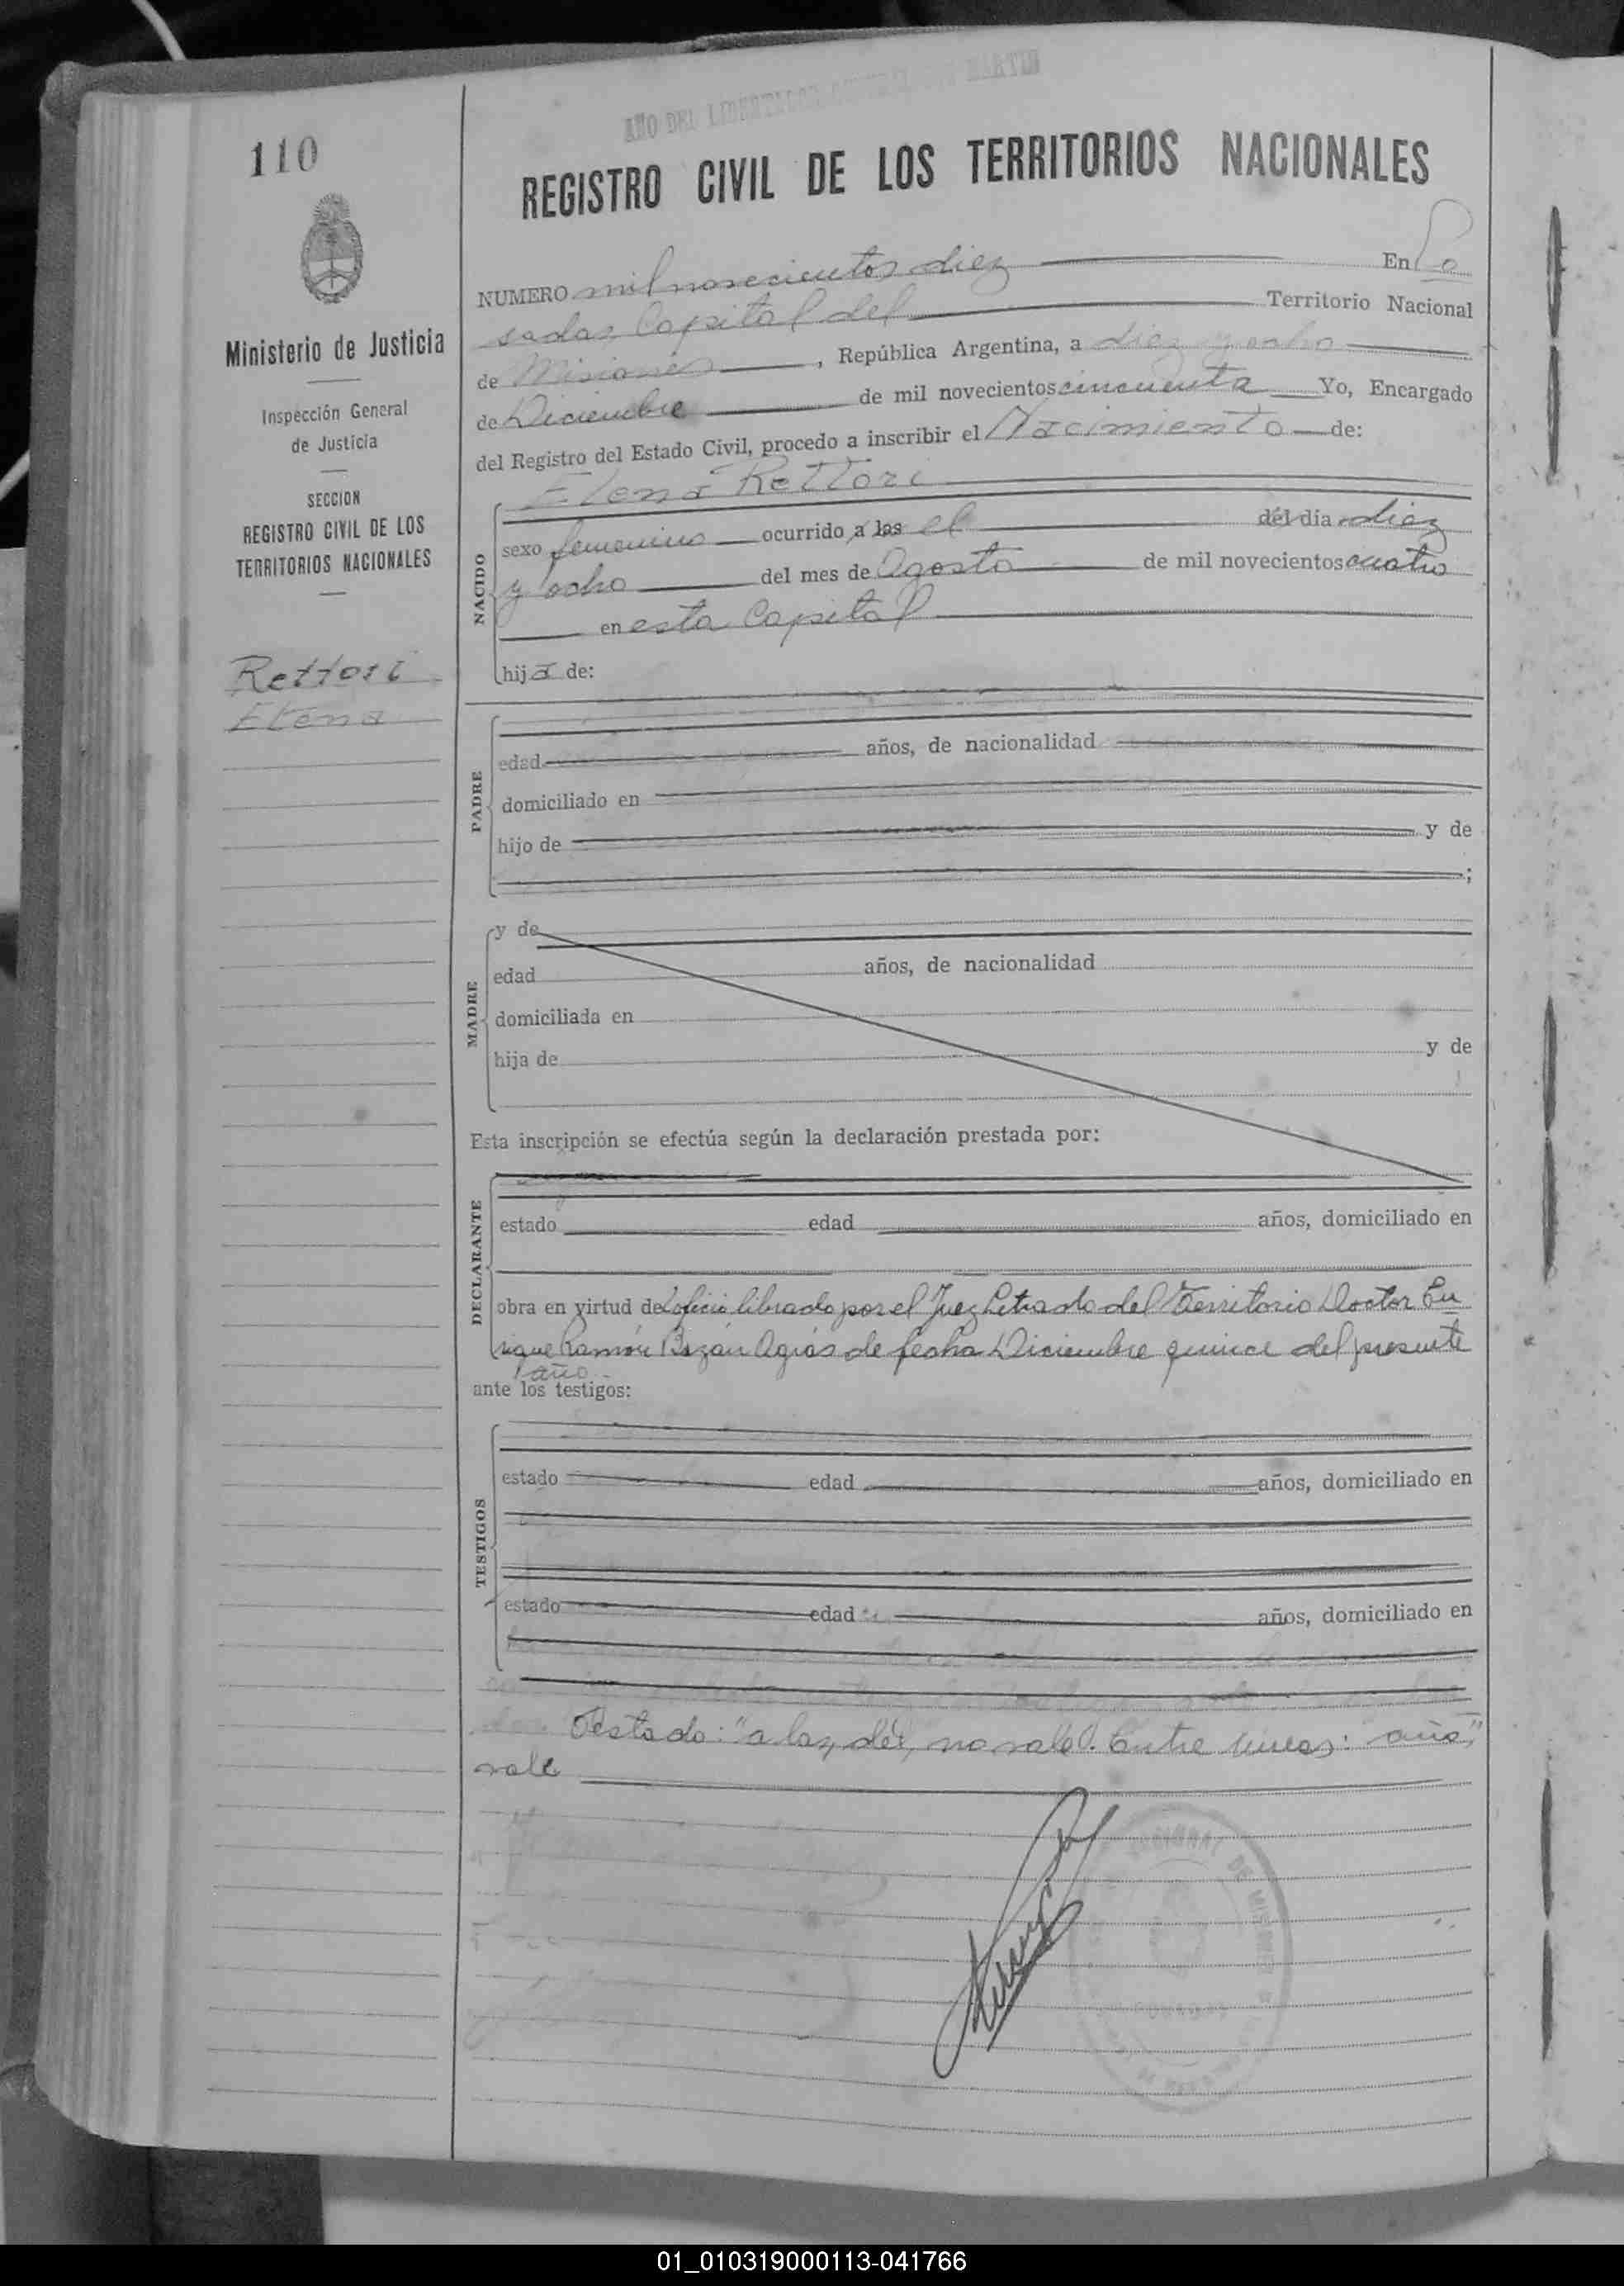 AÑO DEL LIBERTADOR GENERAL SAN MARTIN
110
REGISTRO CIVIL DE LOS TERRITORIOS NACIONALES
NUMERO mil novecientos diez En Po
sadas Capital del Territorio Nacional
de Misiones, República Argentina, a diez y ocho
de Diciembre de mil novecientos cincuenta Yo, Encargado
del Registro del Estado Civil, procedo a inscribir el Nacimiento de:
Elena Rettori
Ministerio de Justicia
Inspección General
de Justicia
SECCION
REGISTRO CIVIL DE LOS
TERRITORIOS NACIONALES
Rettori
Elena
NACIDO
sexo femenino ocurrido a las el del día diez
y ocho del mes de Agosto de mil novecientos cuatro
en esta Capital
hija de:
PADRE
edad años, de nacionalidad
domiciliado en
hijo de y de
;
MADRE
y de
edad años, de nacionalidad
domiciliada en
hija de y de
Esta inscripción se efectúa según la declaración prestada por:
DECLARANTE
estado edad años, domiciliado en
obra en virtud del oficio librado por el Juez Letrado del Territorio Doctor En
rique Ramón Bazán Agrás de fecha Diciembre quince del presente
año
ante los testigos:
TESTIGOS
estado edad años, domiciliado en
estado edad años, domiciliado en
Testado: "a las, del, no vale". Entre líneas: año,"
vale
01_010319000113-041766